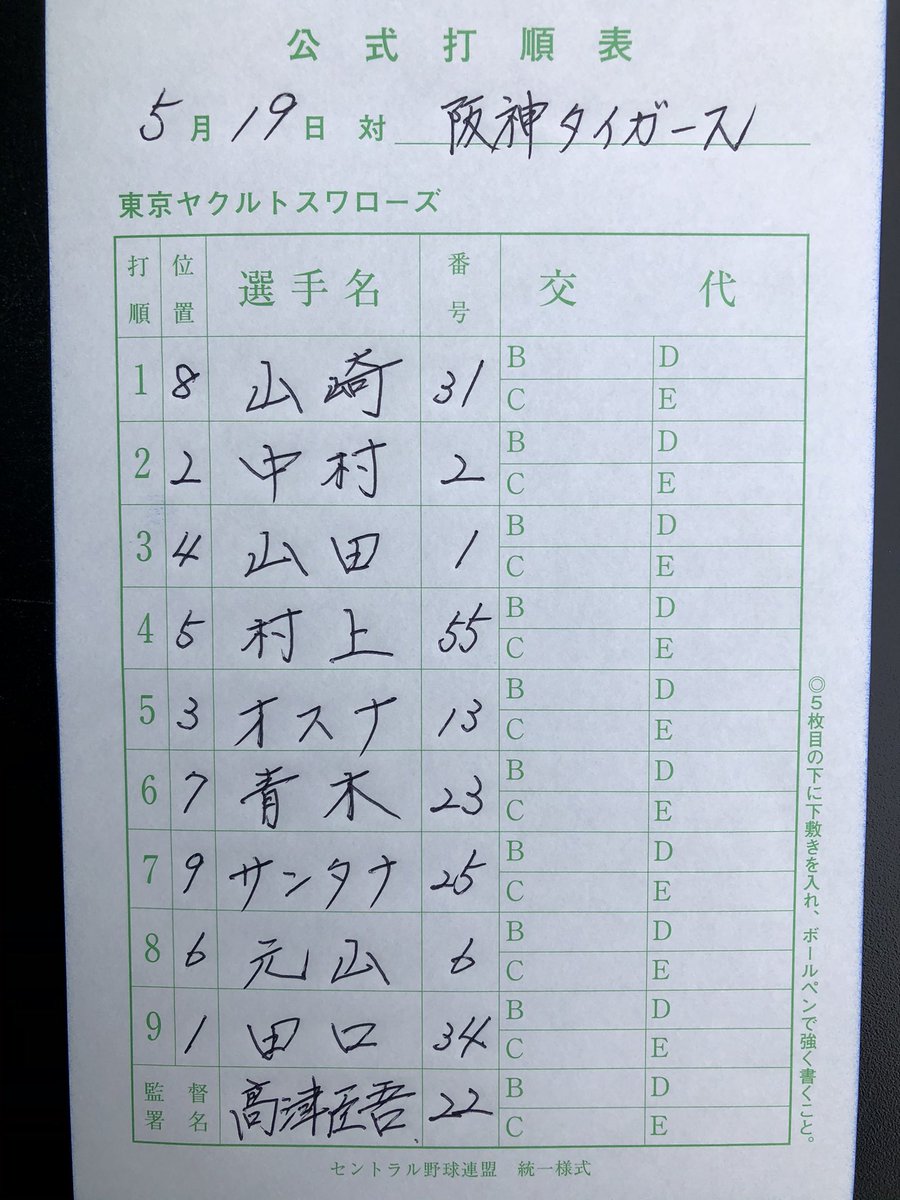 公式打順表
5月19日 対 阪神タイガース
東京ヤクルトスワローズ
打順 位置 選手名 番号 交代
1 8 山崎 31 B D
C E
2 2 中村 2 B D
C E
3 4 山田 1 B D
C E
4 5 村上 55 B D
C E
5 3 オスナ 13 B D
C E
6 7 青木 23 B D
C E
7 9 サンタナ 25 B D
C E
8 6 元山 6 B D
C E
9 1 田口 34 B D
C E
監督署名 高津臣吾 22 B D
C E
◎5枚目の下に下敷きを入れ、ボールペンで強く書くこと。
セントラル野球連盟 統一様式